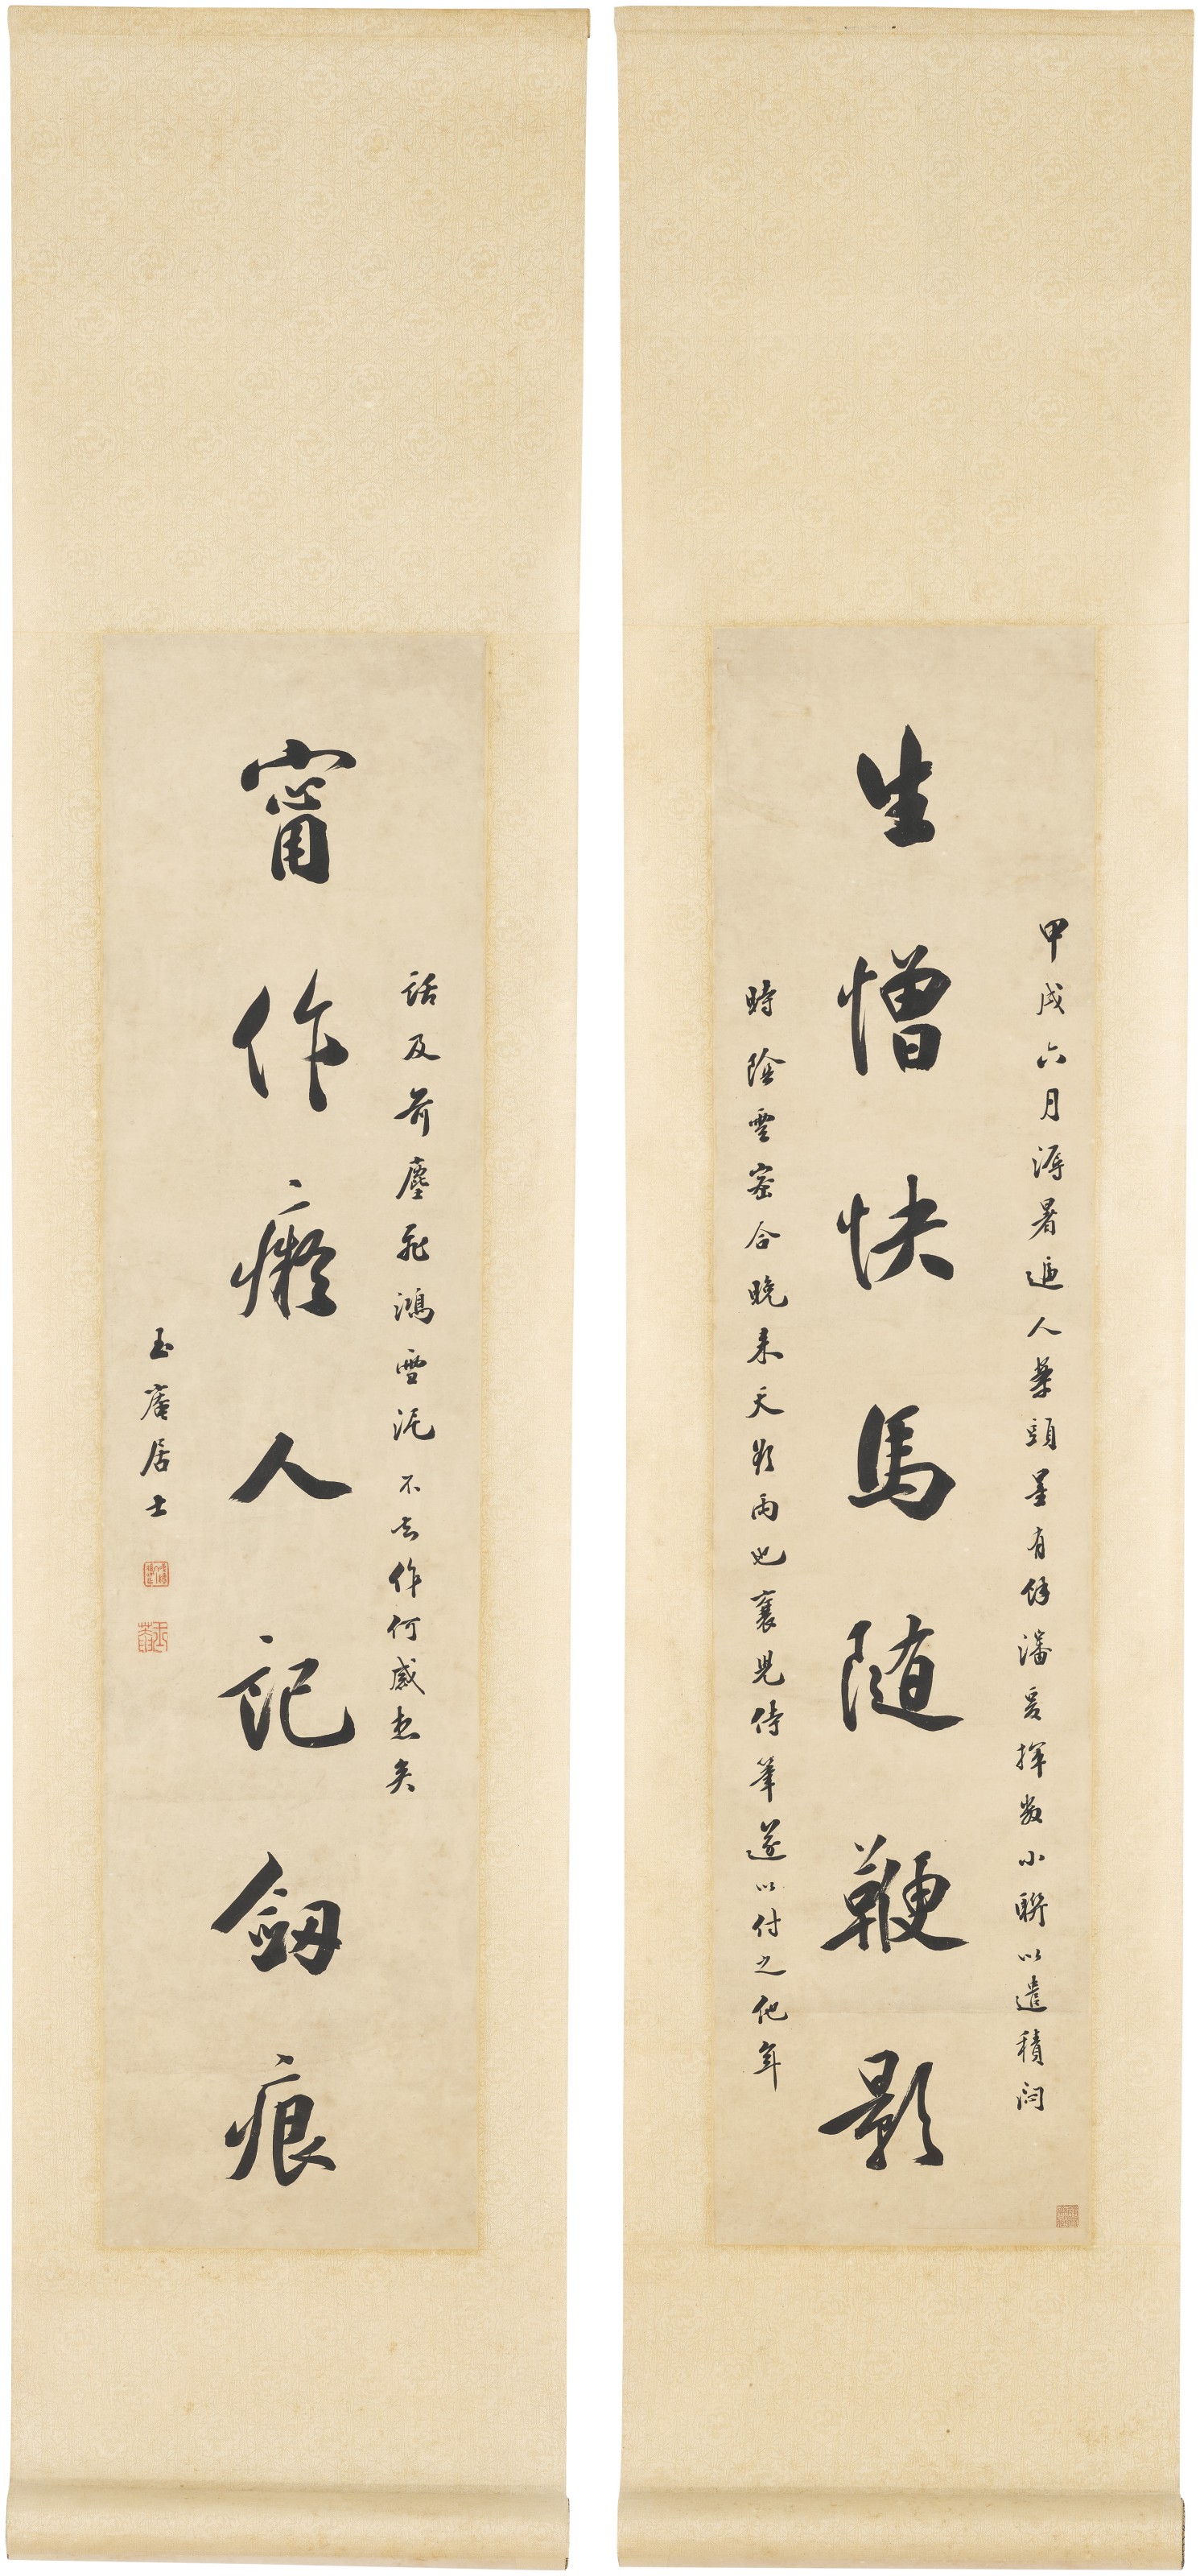 生憎快馬隨鞭影
甲戌六月溽暑逼人藥頭墨有餘瀋爰揮數小聯以遣積悶
時陰雲密合晚來天欲雨也襄兒侍筆遂以付之他年
甯作癡人記劒痕
話及前塵飛鴻雪泥不知作何感想矣
玉葊居士